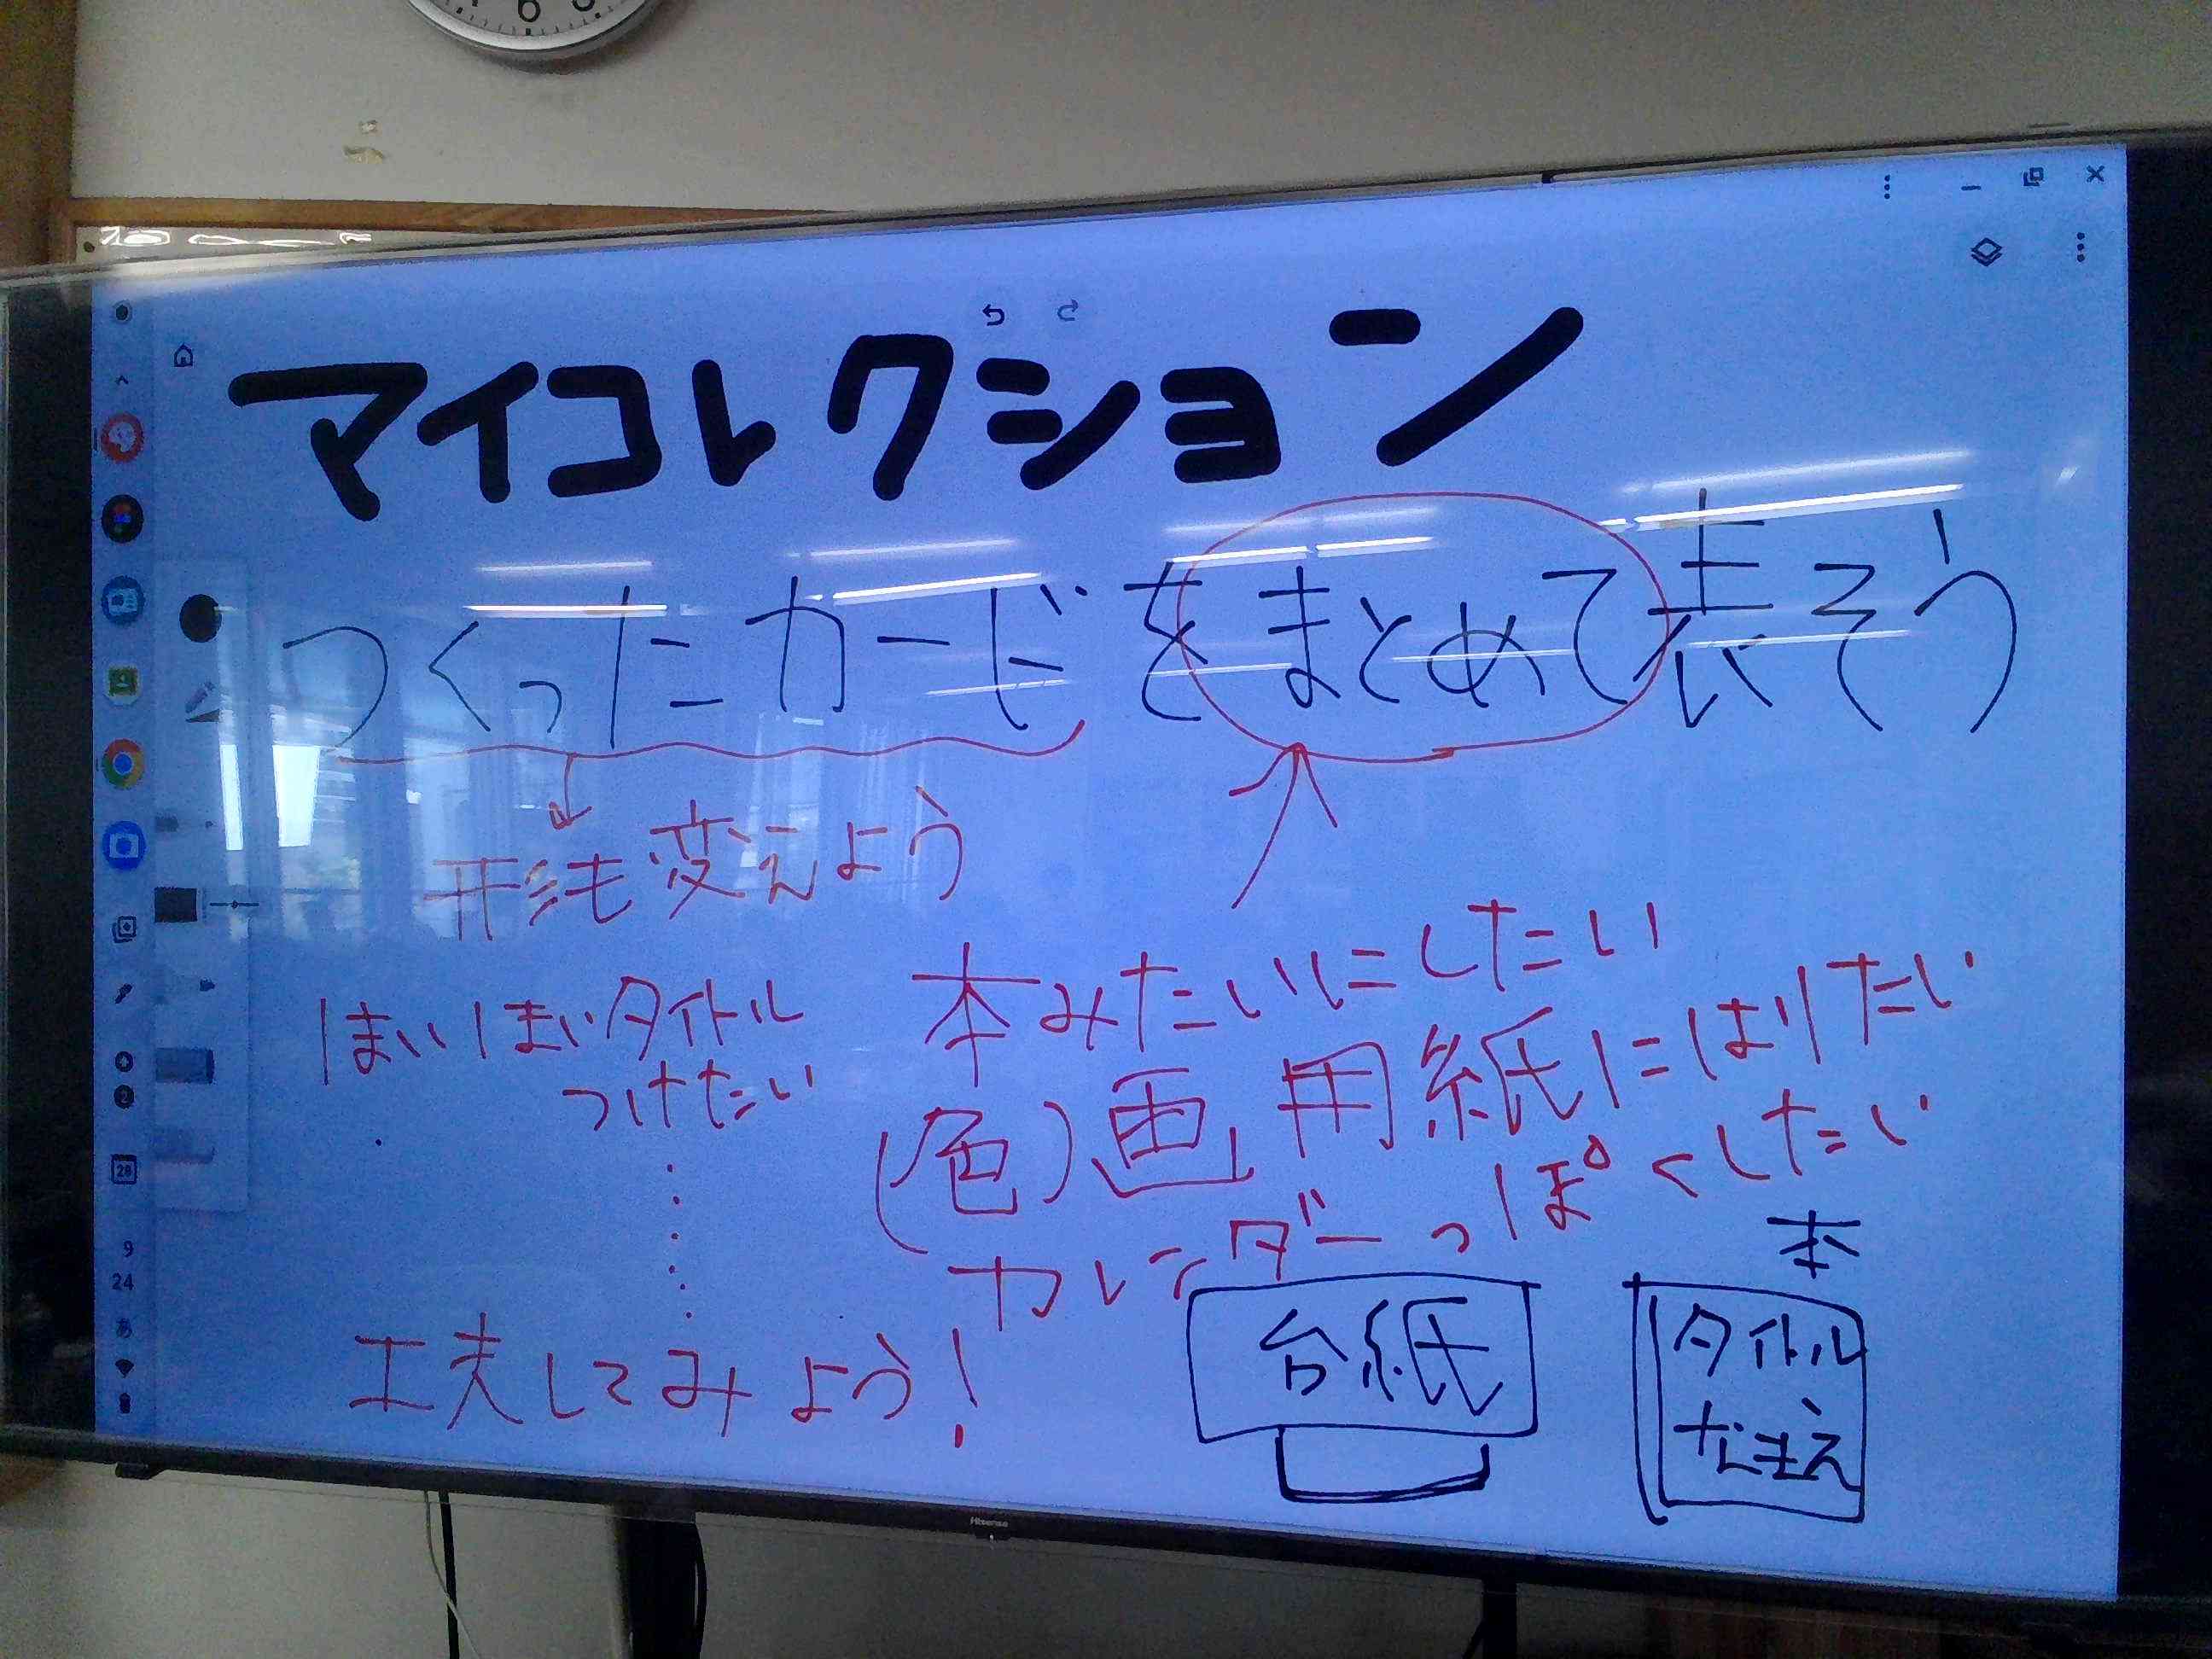 6
マイコレクション
つくったカードをまとめて表そう
形も変えよう
本みたいにしたい
タイトル
つけたい
(色)画用紙にはりたい
カレンダーっぽくしたい
工夫してみよう!
台紙
本
タイトル
なまえ
28
9
24
あ
Hisense